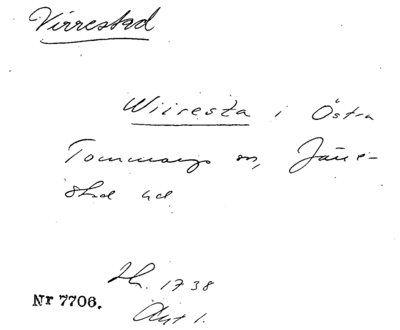 Virrestad
Wiiresta i Östra
Tommarps sn, Järre-
stad hd
Jb. 1738
Nr 7706.
Avt 1.